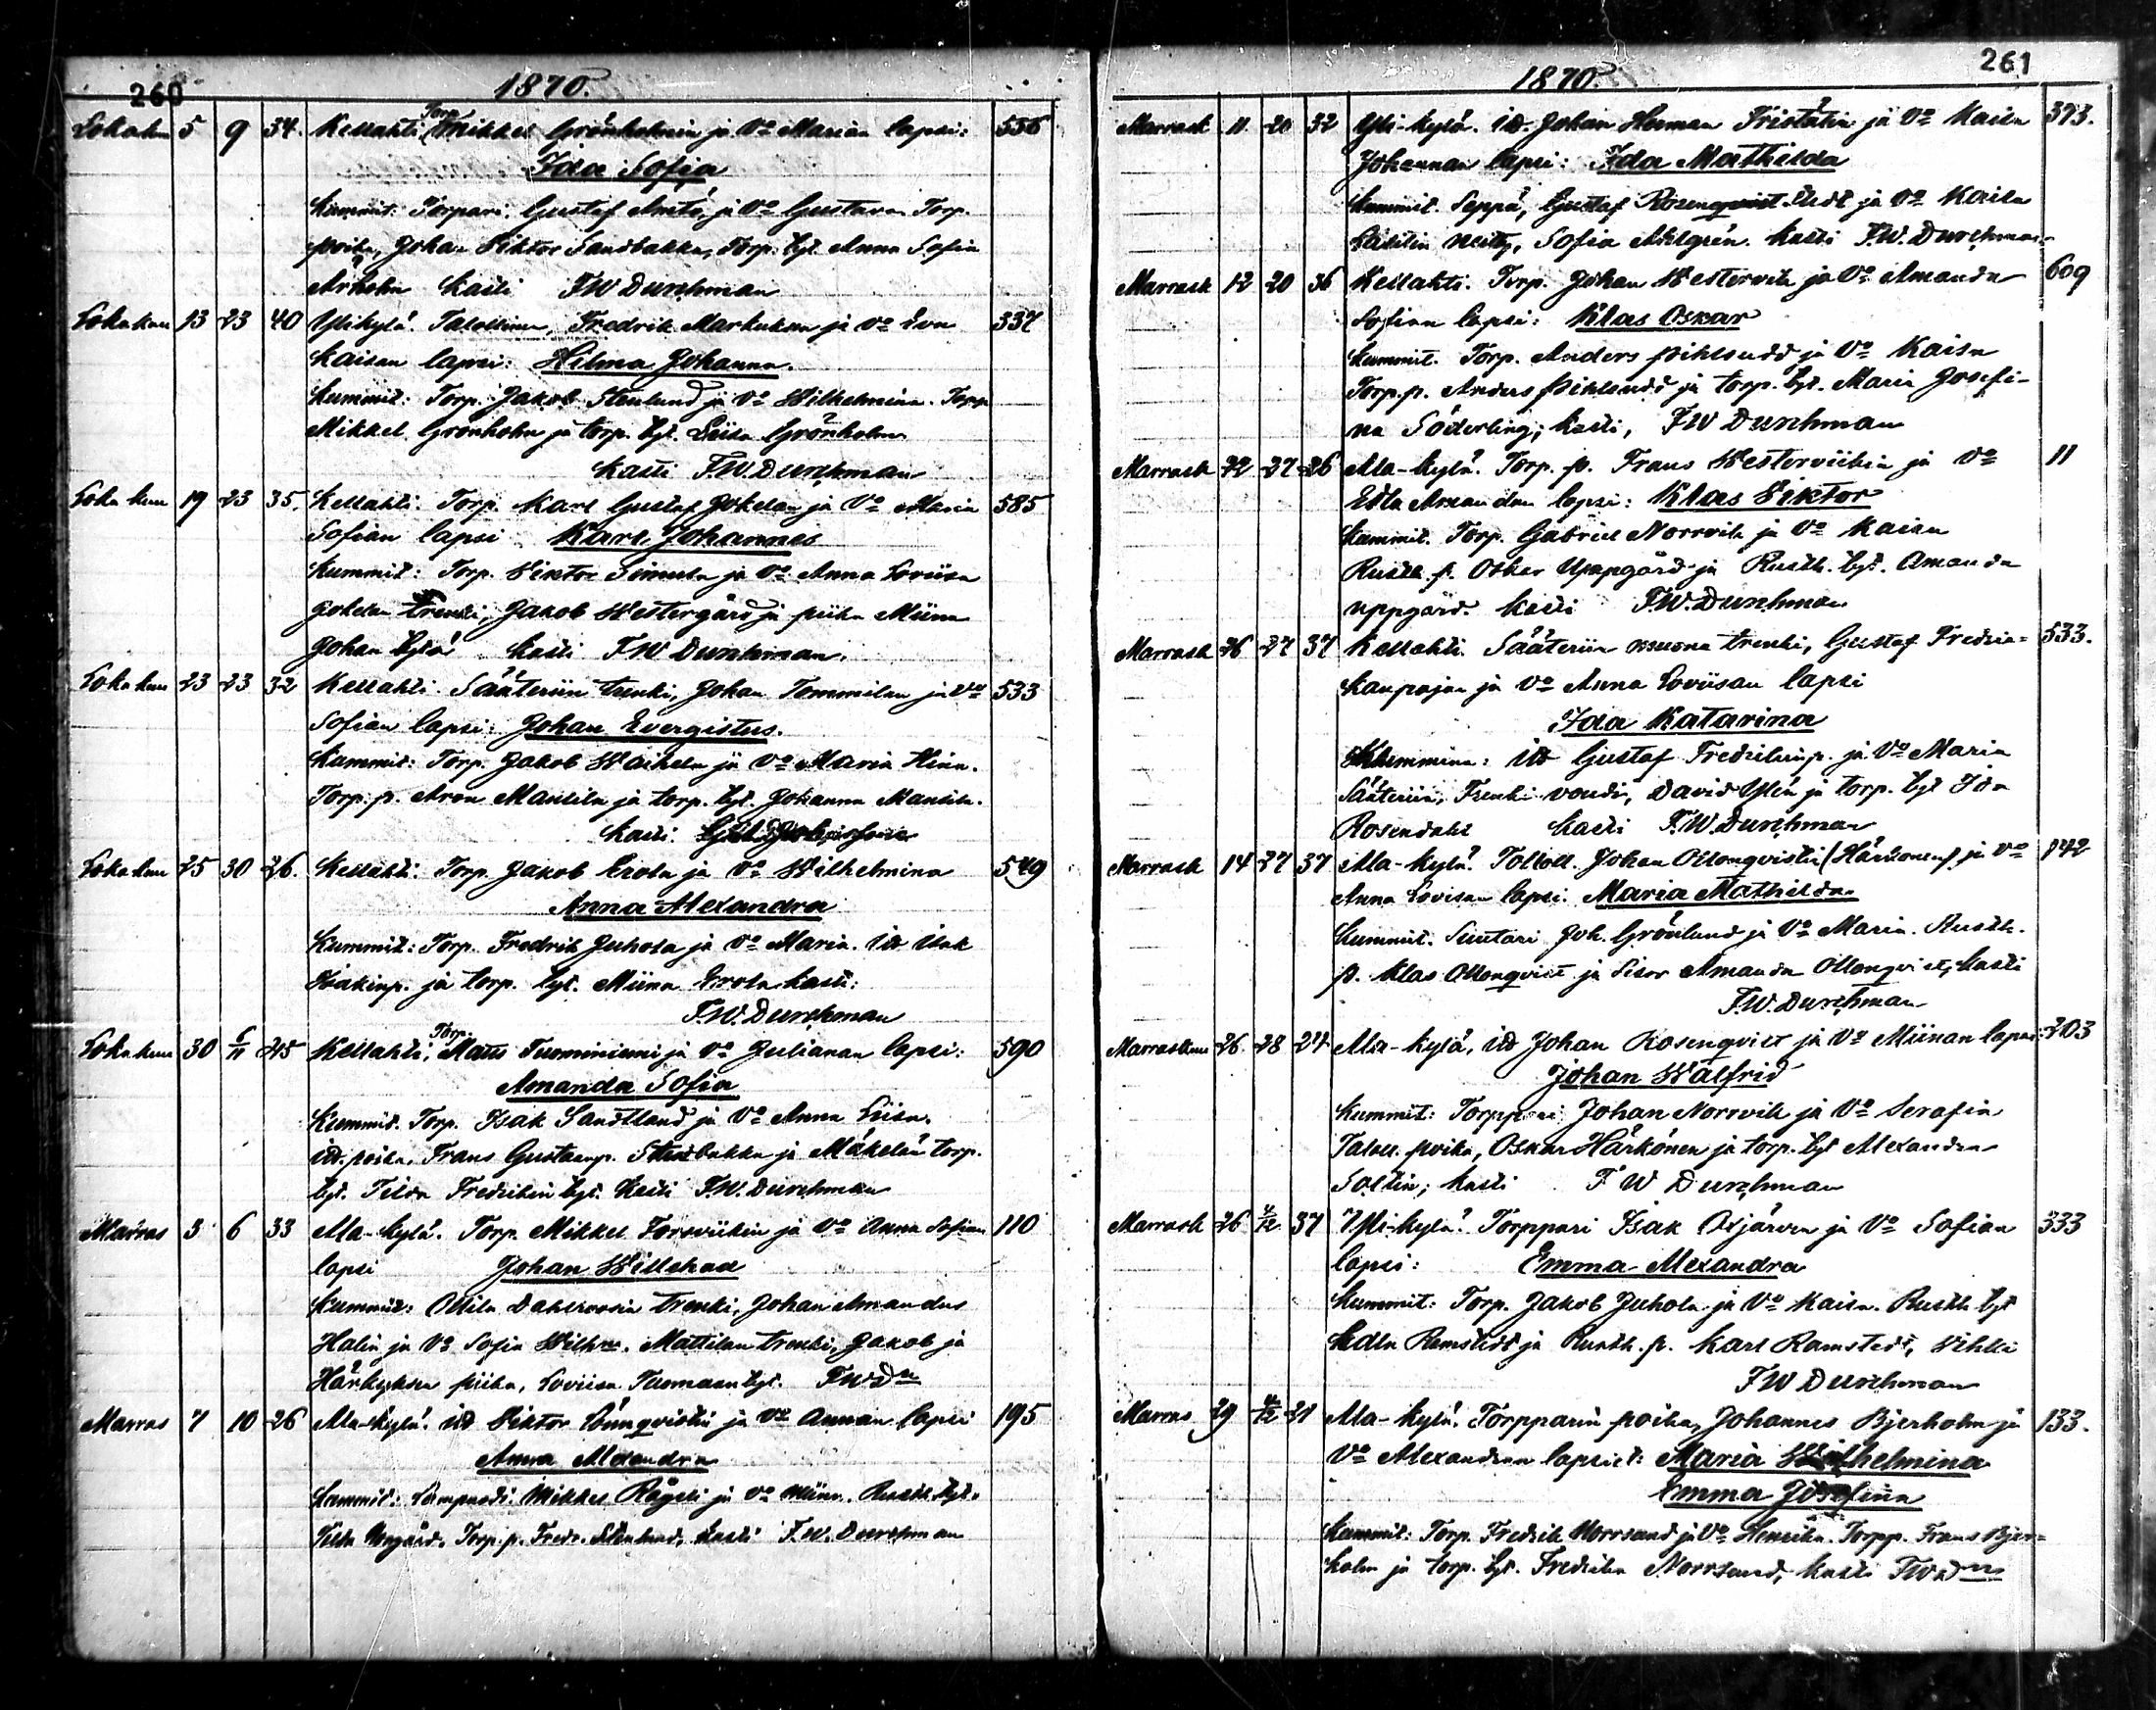 260
1870.
Lokakuu 5 9 34. Kellahti (Torp. Mikkel Grönholmin ja Vo Marian lapsi: 556
Ida Sofia
Kummit: Torpari Gustaf Amtö, ja Vo Gustava Torp.
poika, Johan Viktor Sandbakka, Torp. tyt. Anna Sofia
Arholm Kasti FW Durchman
Lokakuu 13 23 40 Ylikylä. Talollinen, Fredrik Markukan ja vo Eva 337
Kaisan lapsi: Hilma Johanna.
Kummit: Torp. Jakob Stenlund ja Vo Wilhelmina. Torp
Mikkel Grönholm ja torp. tyt. Liisa Grönholm
Kasti F.W. Durchman
Loka kuu 19 23 35. Kellahti. Torp. Karl Gustaf Jokelan ja Vo Maria 585
Sofian lapsi Karl Johannes
Kummit: Torp. Viktor Simula ja Vo Anna Loviisa
Jokelan trenki, Jakob Westergård ja piika Miina
Johan tytö. Kasti F W Durchman.
Loka kuu 23 23 32 Kellahti. Sääteriin trenki, Johan Tommilan ja vo 533
Sofian lapsi: Johan Evergistus.
Kummit: Torp. Jakob Waihela ja Vo Maria Hina.
Torp. p. Aron Mantila ja torp. tyt. Johanna Mantila.
Kasti:
Loka kuu 25 30 26. Kellahti. Torp. Jakob Erola ja Vo Wilhelmina 549
Anna Alexandra
Kummit: Torp. Fredrik Juhola ja Vo Maria. itr Isak
Isakinp. ja torp. tyt. Miina Erola kasti:
F.W. Durchman
Loka kuu 30 6/11 45 Kellahti, Torp. Matts Tuominiemi ja Vo Julianan lapsi: 590
Amanda Sofia
Kummit. Torp. Isak Sandtland ja Vo Anna Liisa.
itr. poika, Frans Gustafinp. Stenbakka ja Mäkelän torp.
tyt. Tilda Fredrikin tyt. Kasti F.W. Durchman
Marras 3 6 33 Ala-kylä. Torp. Mikkel Forsviikin ja Vo Anna Sofian 110
lapsi Johan Willehad
Kummit: Ollila Dahlroosin trenki, Johan Amandus
Halin ja Vo Sofia Wilhm. Mattilan trenki, Jakob ja
Härkyksen piika, Loviisa Tuomaan tyt. FWDn
Marras 7 10 26 Ala-kylä. itr Viktor Lönnqvistin ja vo Annan lapsi 195
Anna Alexandra
Kummit: Lampuodi. Mikkel Rågeli ja vo Miina. Rusth. tyt.
Tilda Norgård. Torp. p. Fredr. Stenlund. kasti F.W. Durchman
261
1870.
Marrask 11. 20 32 Yli-kylä. itr. Johan Herman Fristätin ja Vo Kaisa 373.
Johannan lapsi: Ida Mathilda
Kummit. Seppä, Gustaf Rosenqvist ja Vo Kaisa
neity, Sofia Ahlgrén. kasti F.W. Durchman
Marrask 12 20 36 Kellahti. Torp. Johan Westervik ja Vo Amanda 609
Sofian lapsi: Klas Oskar
Kummit. Torp. Anders Pihlsudd ja Vo Kaisa
Torp. p. Anders Pihlsudd ja torp. tyt. Maria Josefi-
na Söderling; kasti, F W Durchman
Marrask 22 27 26 Ala-kylä. Torp. p. Frans Westerviikin ja Vo 11
Edla Amandan lapsi: Klas Viktor
Kummit. Torp. Gabriel Norrvik ja Vo Kaisa
Rusth. p. Oskar Uppgård ja Rusth. tyt. Amanda
uppgård. kasti F.W. Durchman
Marrask 26 27 37 Kellahti. Sääteriin muona trenki, Gustaf Fredrik= 533.
Kanpajan ja Vo Anna Loviisan lapsi
Ida Katarina
Kummina: itr Gustaf Fredrikinp. ja Vo Maria
Sääteriin, Trenki voudi, David Ylén ja torp. tyt Ida
Rosendahl kasti F.W. Durchman
Marrask 14 27 37 Ala-kylä. Taloll. Johan Ollonqvistin (Härkönen) ja Vo 142
Anna Lovisan lapsi: Maria Mathilda
Kummit. Suutari Joh. Grönlund ja Vo Maria. Rusth.
p. Klas Ollonqvist ja Sisar Amanda Ollonqvist, kasti
F.W. Durchman
Marraskuu 26. 28 27 Ala-kylä, itr Johan Rosenqvist ja Vo Miinan lapsi: 203
Johan Walfrid
Kummit: Torppari Johan Norrvik ja Vo Serafia
Taloll. poika, Oskar Härkönen ja torp. tyt Alexandra
Soltin; kasti F W Durchman
Marrask 26 4/12 37 Yli-kylä. Torppari Isak Oxjärven ja Vo Sofian 333
lapsi: Emma Alexandra
Kummit: Torp. Jakob Juhola ja Vo Kaisa. Rusth tyt
Hedla Ramstedt ja Rusth. p. Karl Ramstedt, Vihki
F W Durchman
Marras 29 4/12 21 Ala-kylä. Torpparin poika, Johannes Bjerholm ja 133.
Vo Alexandran lapset: Maria Wilhelmina
Emma Josefina
Kummit: Torp. Fredrik Norrsund ja Vo Henrika. Torpp. Frans Bjer=
holm ja torp. tyt. Fredrika Norrsund, kasti FWDn